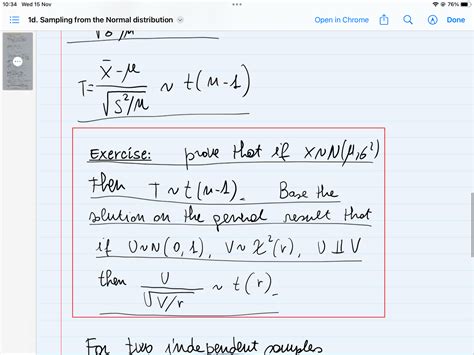 10:34 Wed 15 Nov
76%
1d. Sampling from the Normal distribution
Open in Chrome
Done
T = X̄-μ / √S²/n ~ t(n-1)
Exercise: prove that if X~N(μ,σ²)
then T~t(n-1). Base the
solution on the general result that
if U~N(0,1), V~χ²(r), U ⊥⊥ V
then U / √V/r ~ t(r).
For two independent samples